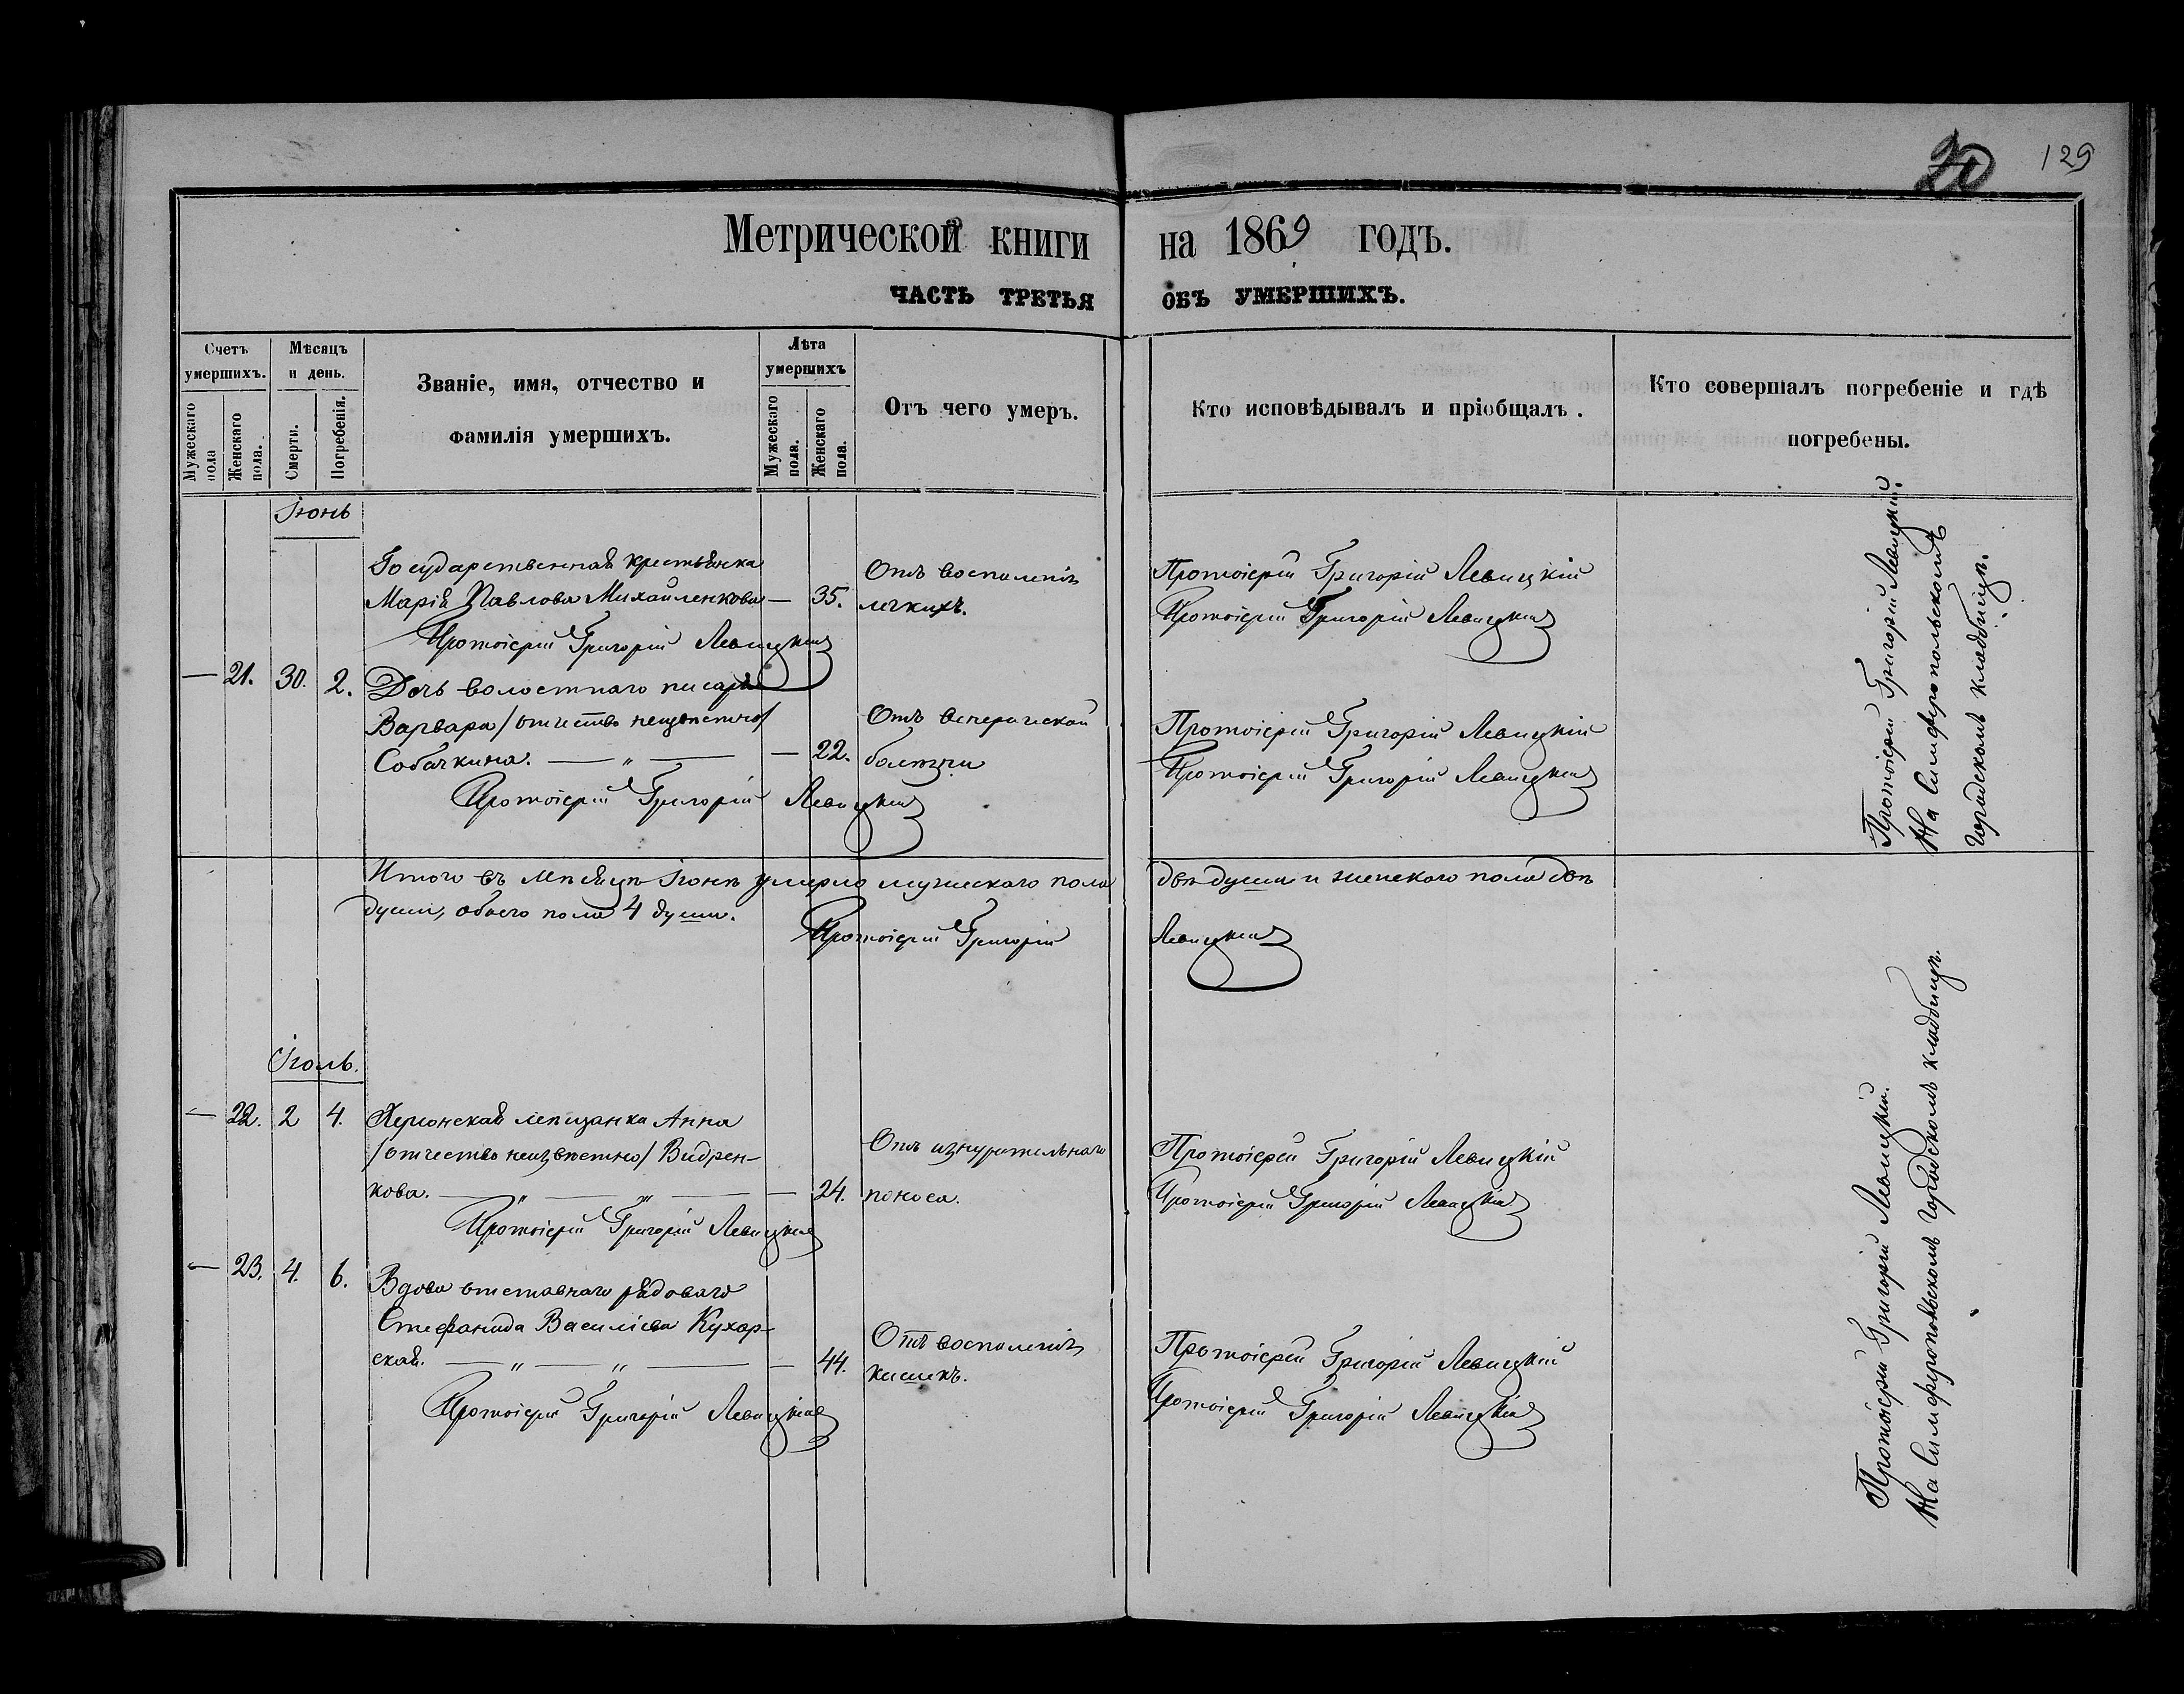 20 129
Метрической книги на 1869 годъ.
ЧАСТЬ ТРЕТЬЯ ОБЪ УМЕРШИХЪ.
Счетъ умершихъ.
Мужескаго пола
Женскаго пола.
Мѣсяцъ и день.
Смерти.
Погребенія.
Званіе, имя, отчество и
фамилія умершихъ.
Лѣта умершихъ
Мужескаго пола.
Женскаго пола.
Отъ чего умеръ.
Кто исповѣдывалъ и пріобщалъ.
Кто совершалъ погребеніе и гдѣ
погребены.
Іюнь
Государственная крестьянка
Марія Павлова Михайленкова — 35.
Отъ воспаленія
легкихъ.
Протоіерей Григорій Левицкій
Протоіерей Григорій Левицкій
Протоіерей Григорій Левицкій
— 21. 30. 2. Дочь волостнаго писаря
Варвара /отчество неизвѣстно/
Собачкина. — „ — — 22.
Отъ венерической
болѣзни
Протоіерей Григорій Левицкій
Протоіерей Григорій Левицкій
Протоіерей Григорій Левицкій
Протоіерей Григорій Левицкій.
На Симферопольскомъ
городскомъ кладбищѣ.
Итого въ мѣсяцѣ Іюнѣ умерло мужескаго пола двѣ души и женскаго пола двѣ
души, обоего пола 4 души.
Протоіерей Григорій Левицкій
Іюль.
— 22. 2 4. Херсонская мѣщанка Анна
/отчество неизвѣстно/ Видрен-
кова. — „ — „ — — 24.
Отъ изнурительнаго
поноса.
Протоіерей Григорій Левицкій
Протоіерей Григорій Левицкій
Протоіерей Григорій Левицкій
— 23. 4. 6. Вдова отставнаго рядоваго
Стефанида Василіева Кухар-
ская. — „ — „ — — 44.
Отъ воспаленія
кишекъ.
Протоіерей Григорій Левицкій
Протоіерей Григорій Левицкій
Протоіерей Григорій Левицкій
Протоіерей Григорій Левицкій.
На Симферопольскомъ городскомъ кладбищѣ.